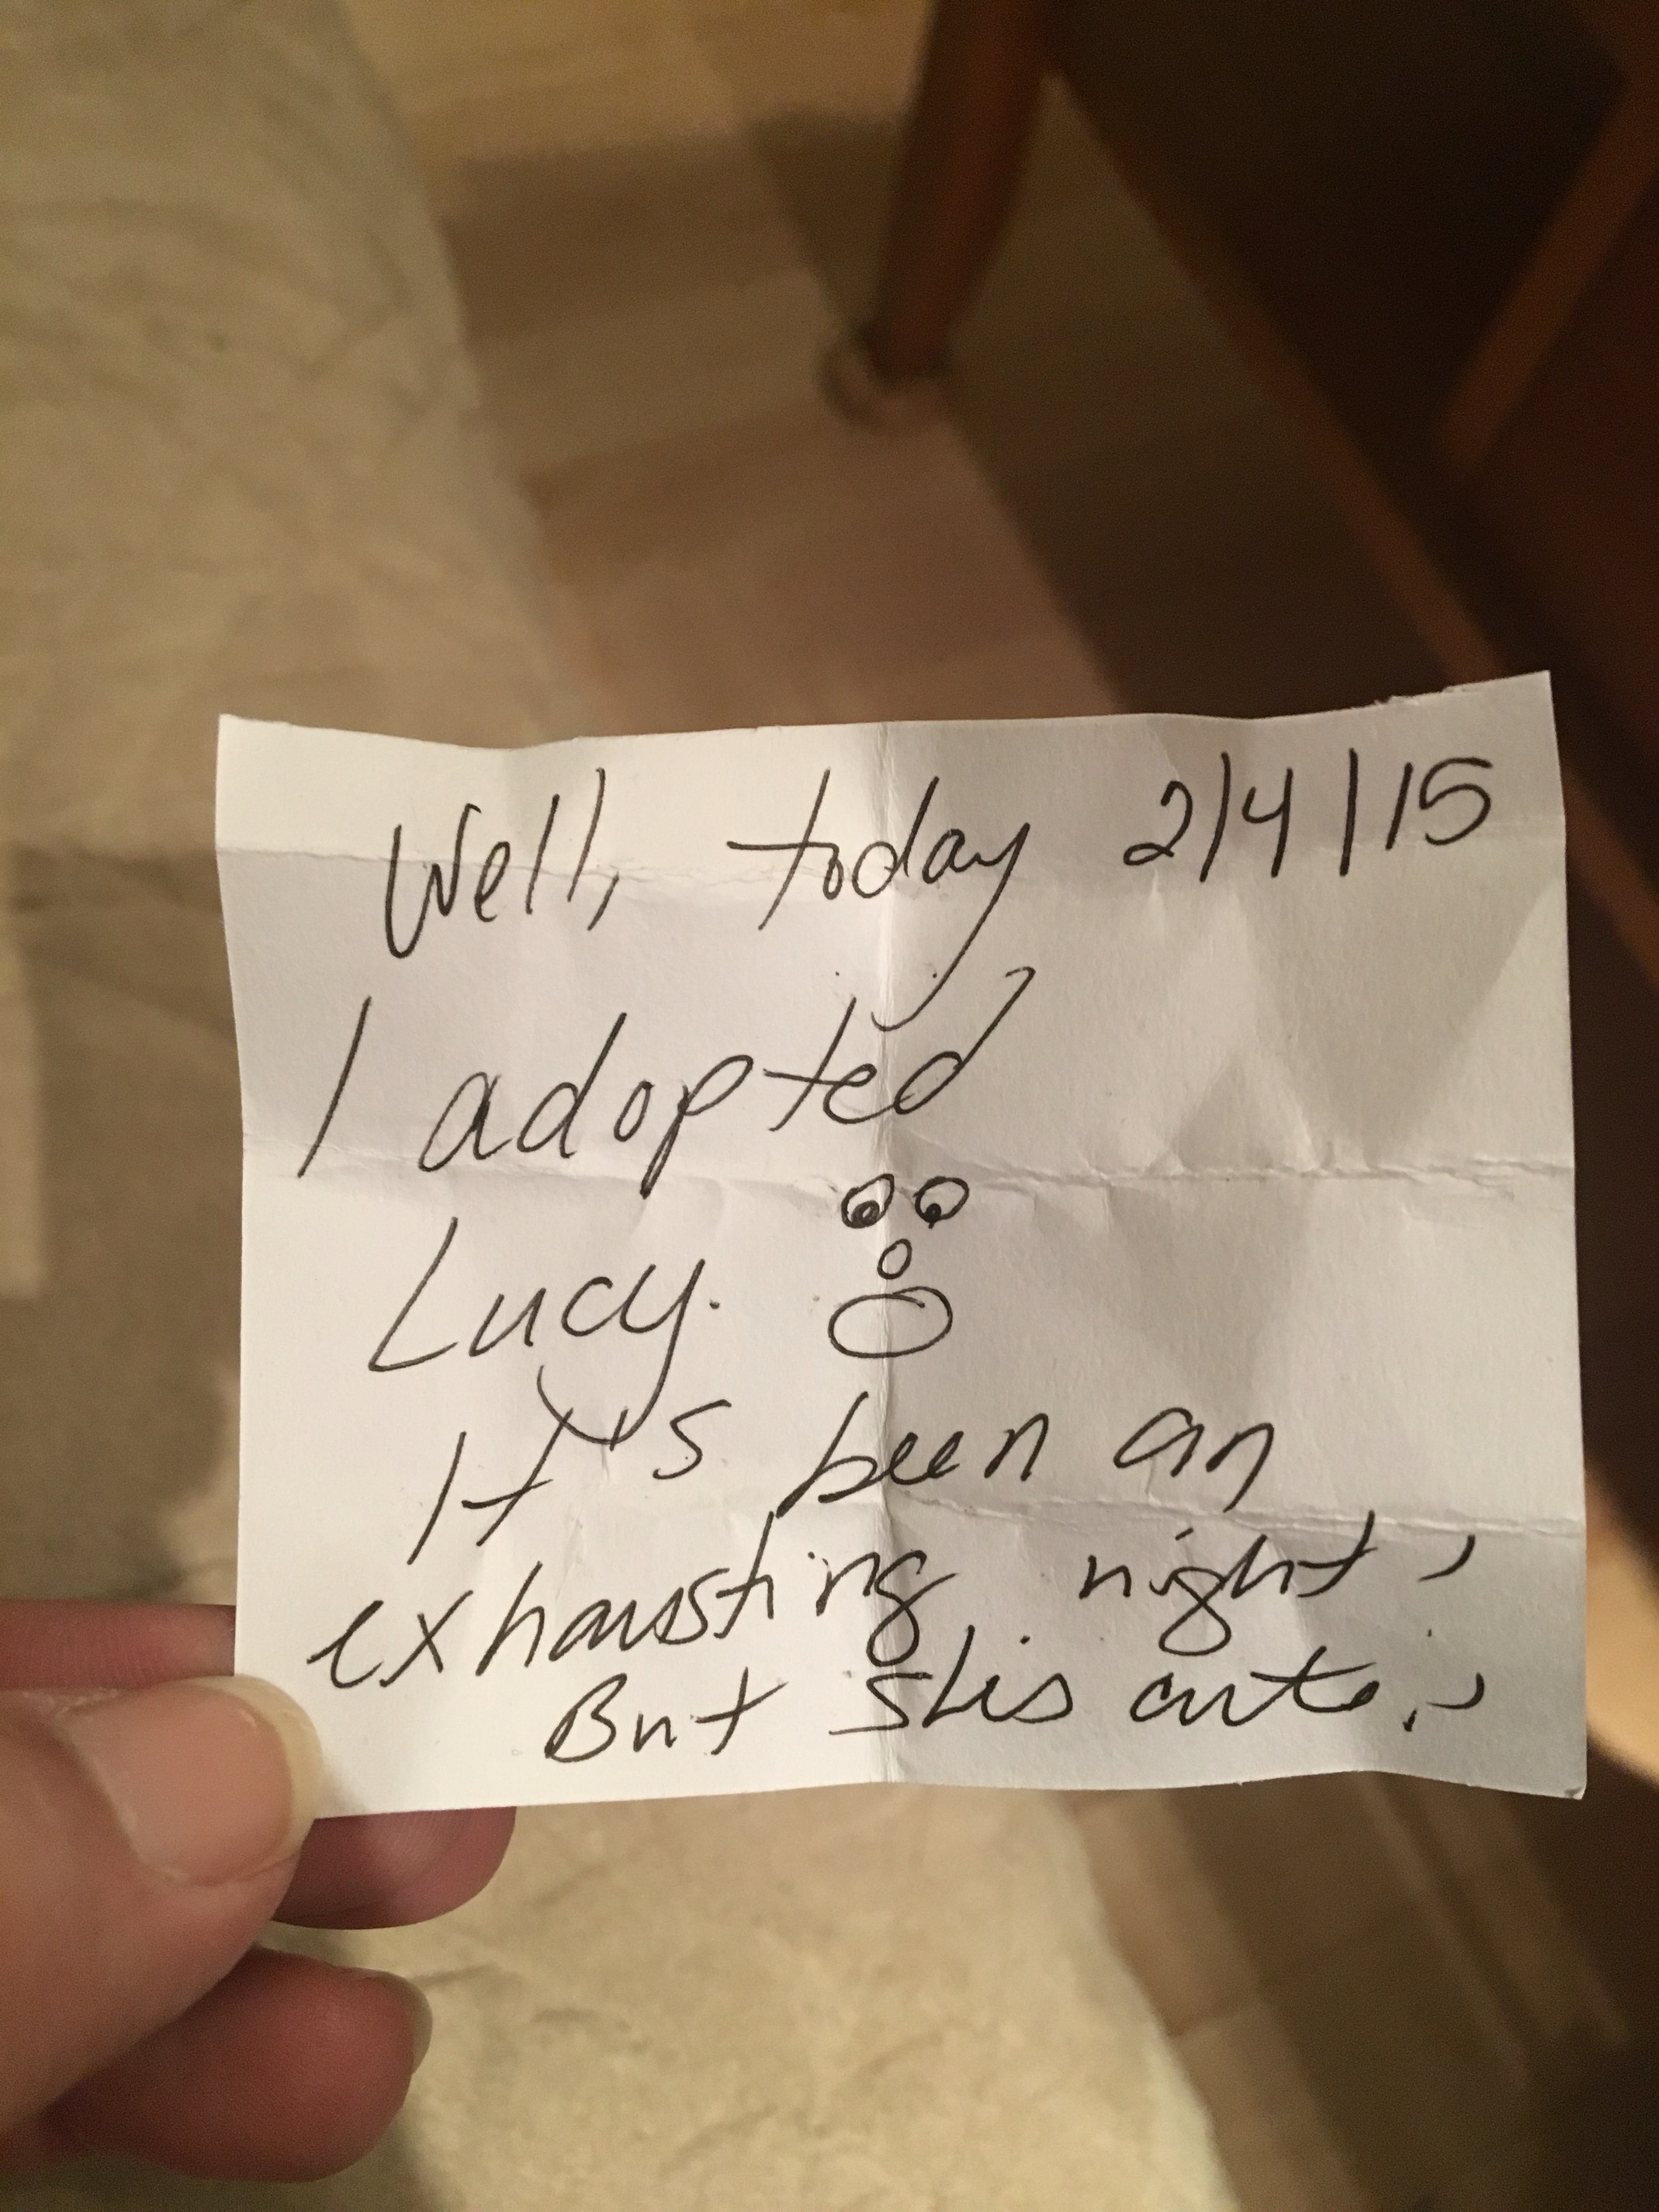 Well, today 2/4/15
I adopted
Lucy.
It's been an
exhausting night,
But she's cute.